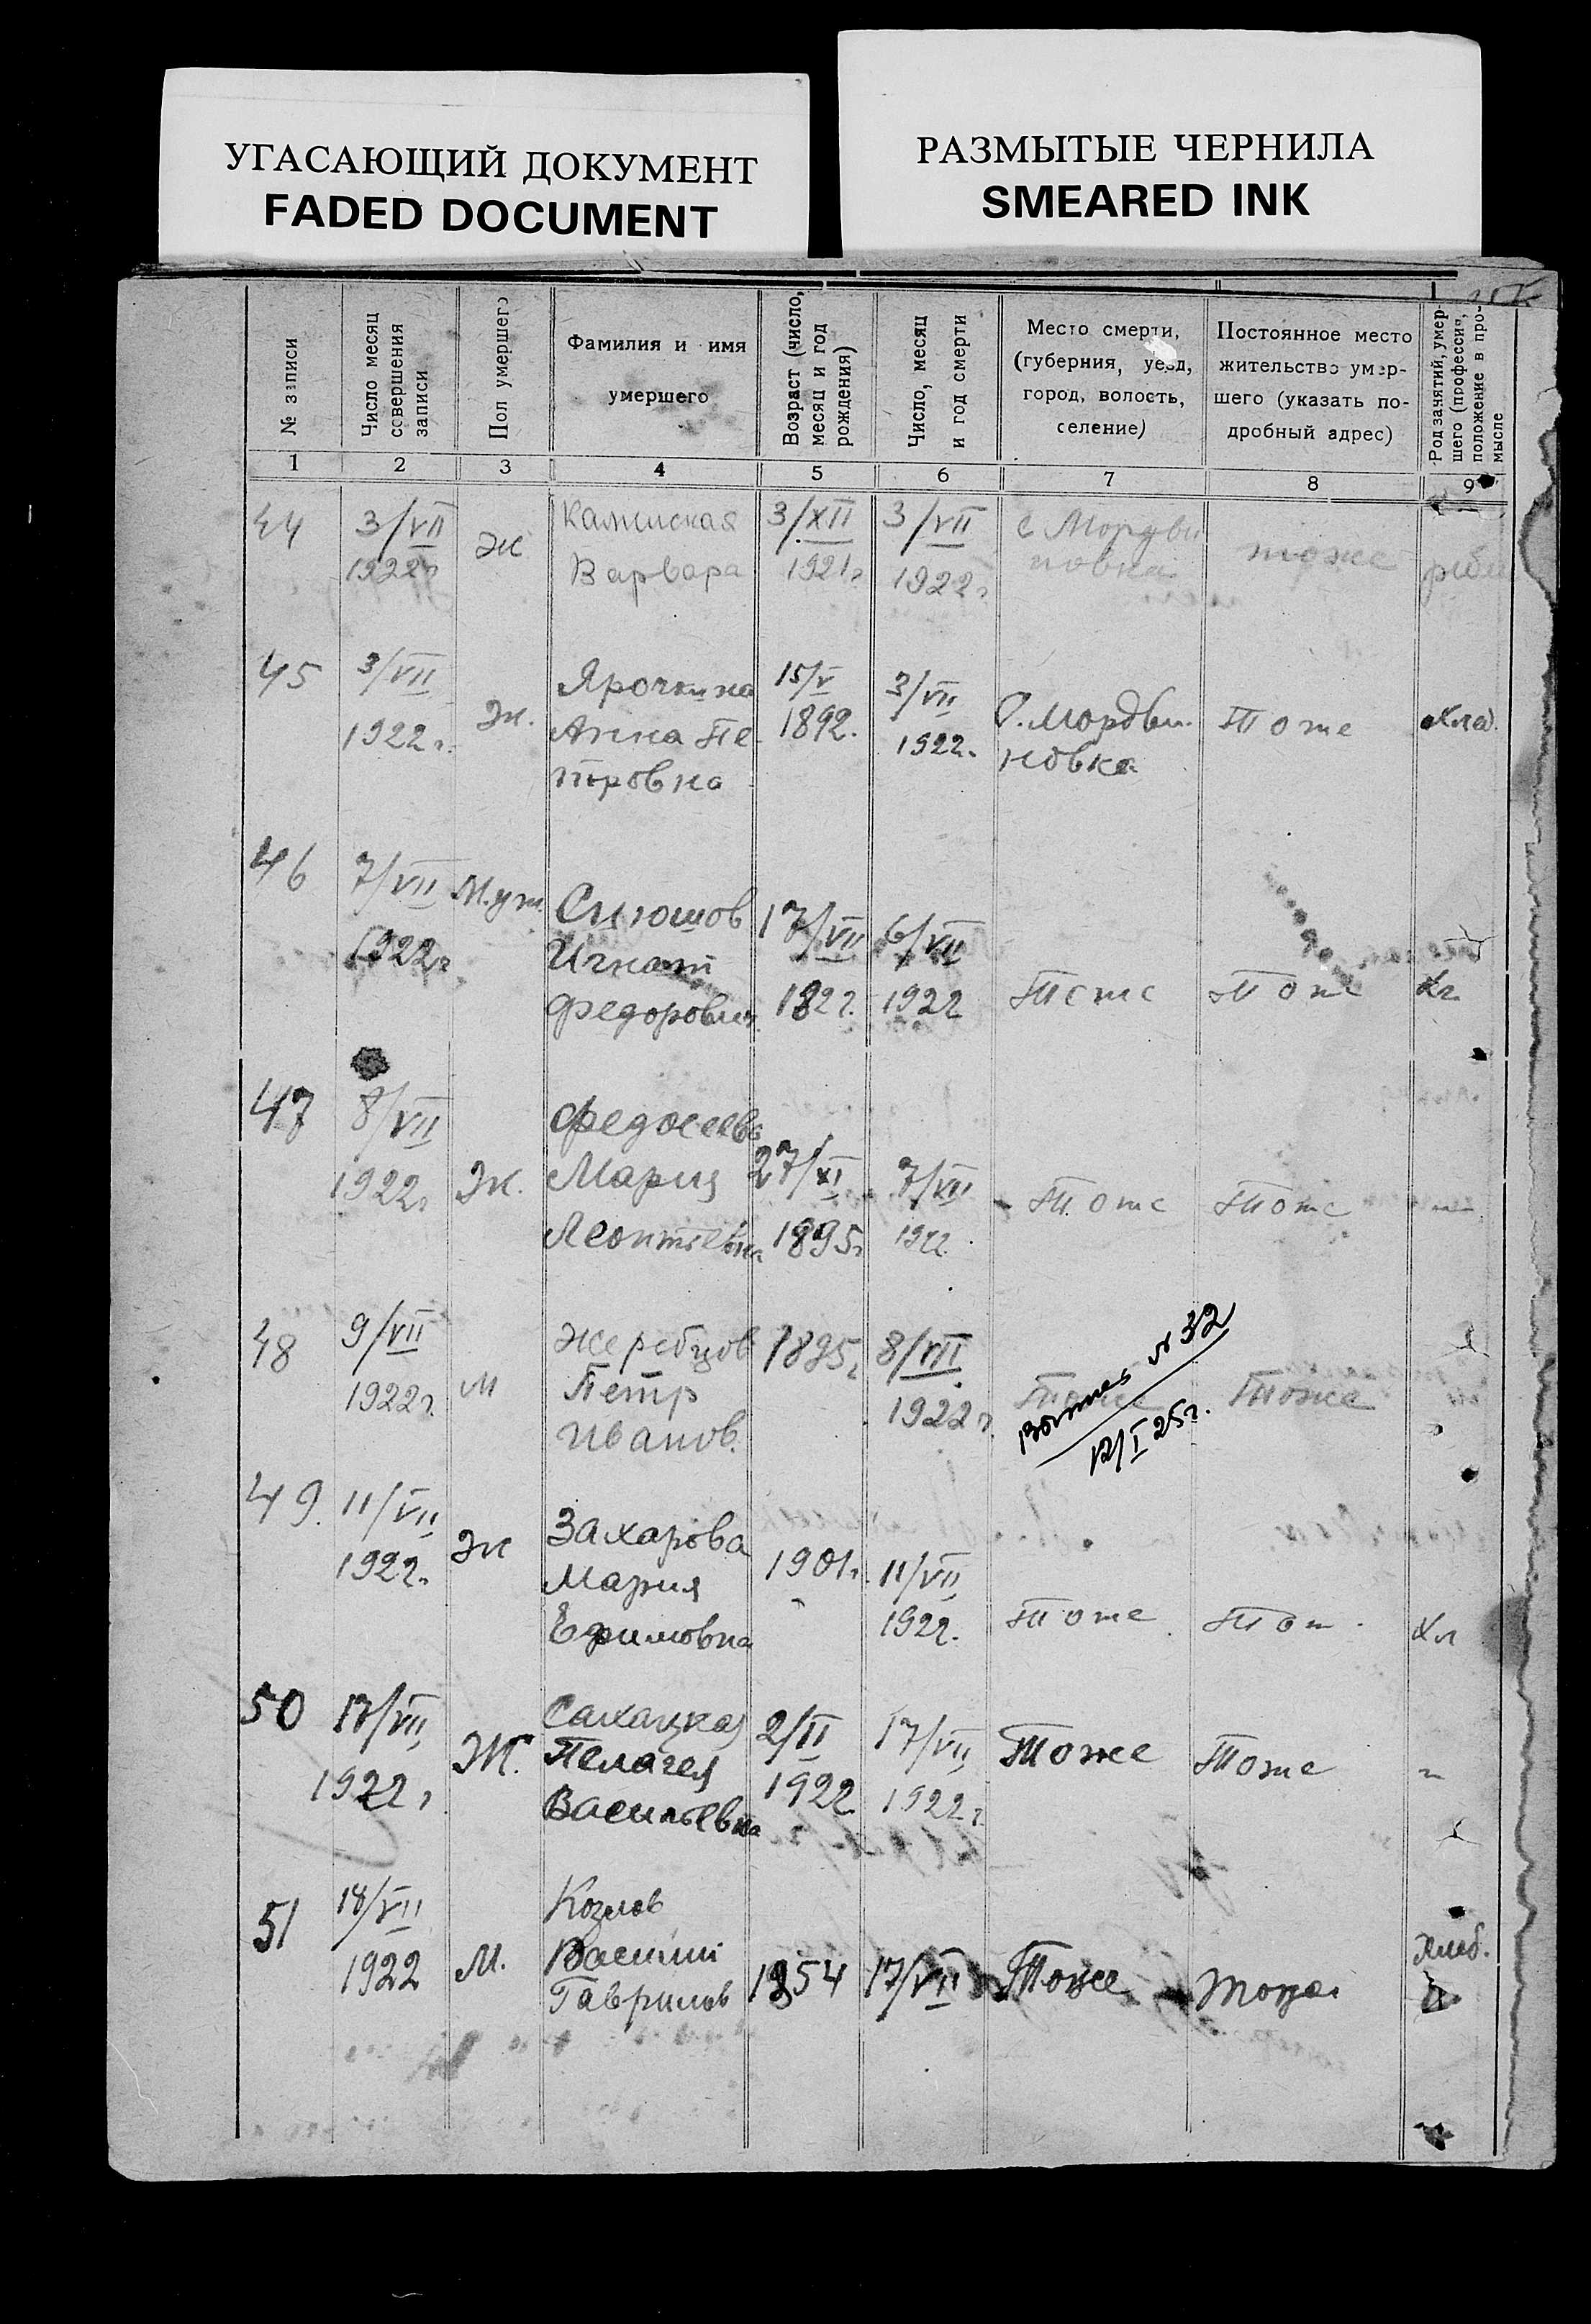 УГАСАЮЩИЙ ДОКУМЕНТ
FADED DOCUMENT
РАЗМЫТЫЕ ЧЕРНИЛА
SMEARED INK
№ записи
Число месяц
совершения
записи
Пол умершего
Фамилия и имя
умершего
Возраст (число,
месяц и год
рождения)
Число, месяц
и год смерти
Место смерти,
(губерния, уезд,
город, волость,
селение)
Постоянное место
жительство умер-
шего (указать по-
дробный адрес)
Род занятий, умер-
шего (профессия,
положение в про-
мысле
1 2 3 4 5 6 7 8 9
44 3/VII 3/XII 3/VII с Мордви
1922г Ж Варвара 1921г 1922г новка тоже
45 3/VII Ярочкина 15/V 3/VII
1922г. Ж. Анна Пе 1892. 1922г. С. Мордви. Тоже
тровна новка
46 7/VII Муж. 17/VII 6/VII
1922г Игнат
Федорович 182г. 1922 Тоже Тоже Хл
47 8/VII Федосеева
1922г Ж. Мария 27/XI 7/VII Тоже Тоже
Леонтьевна 1895г 192г.
48 9/VII Жеребцов 1895г 8/VII
1922г. М Петр 1922г Тоже Тоже
Иванов.
№ 32
12/I 25г.
49. 11/VII Захарова
192г. Ж Мария 1901г. 11/VII
Ефимовна 192г. Тоже Тож. Хл
50 17/VII Сахацкая 2/II 17/VII
1922г Ж. Пелагея 1922 1922г. Тоже Тоже "
Васильевна
51 18/VII Козлов
1922 М. Василий Хлеб.
Гаврилов 1854 17/VII Тоже Тоже